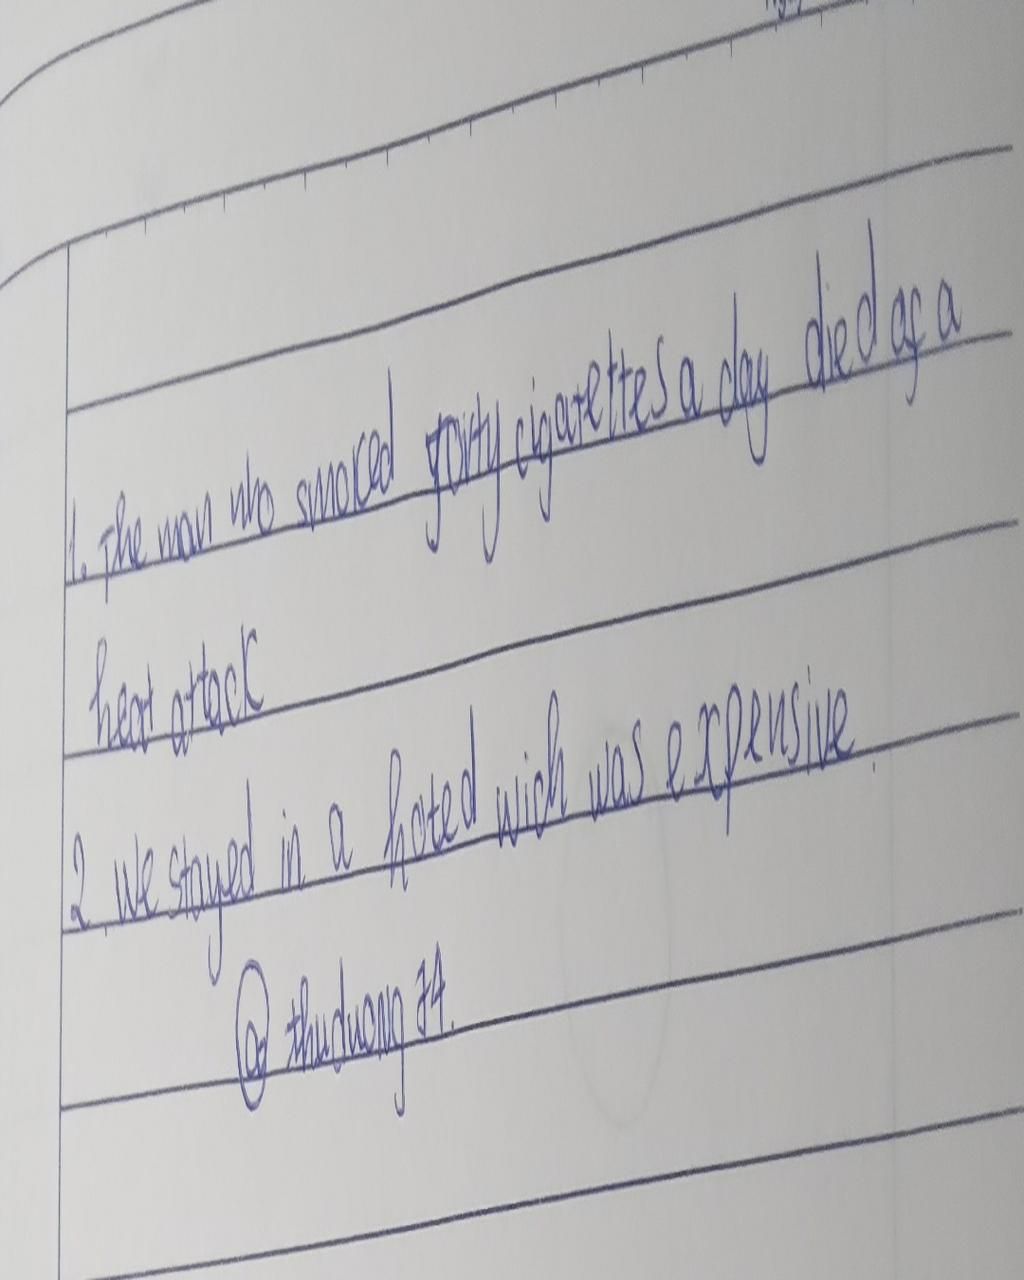 1. The man who smoked forty cigarettes a day died of a
heart attack
2 We stayed in a hoted wich was expensive.
@ thuduong 74.